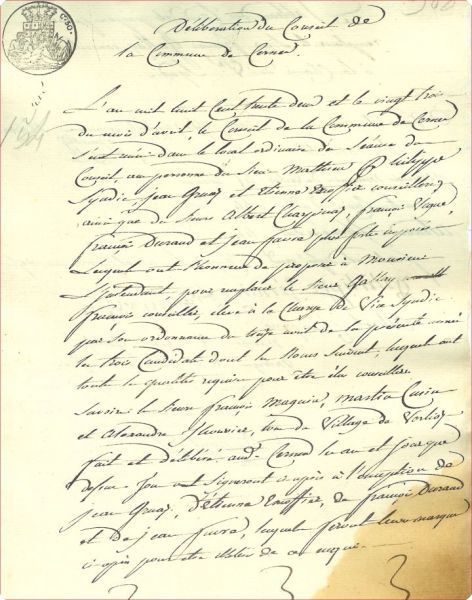 Délibération du Conseil de
la Commune de Cernex
L'an mil huit Cent trente deux et le vingt trois
du mois d'avril, le Conseil de la Commune de Cernex
s'est réuni dans le local ordinaire des Séances du
Conseil, au personne du Sieur Mathieu Philippe
Syndic, jean et Etienne conseillers
ainsi que du Sieurs Albert françois Vigne,
françois Durand et jean favre plus forts imposés
Lesquels ont l'honneur de proposer à Monsieur
L'intendant, pour remplacer le Sieur Gallay
françois conseiller, elevé à la Charge de Vice Syndic
par Son ordonnance du treize avril de la présente année
les trois Candidats dont les Noms Suivent, lesquels ont
toute les qualités requises pour être élu conseiller
Savoir le Sieurs françois Magnin, martin
et Alexandre tous du Village de
fait et délibéré aud. Cernex les an et jour que
dessus. Jou vat Signeront ci après à l'exception de
jean d'Etienne de françois Durand
et de jean favre, lesquels feront leurs marques
ci après pour être illitérés de ce enquis.